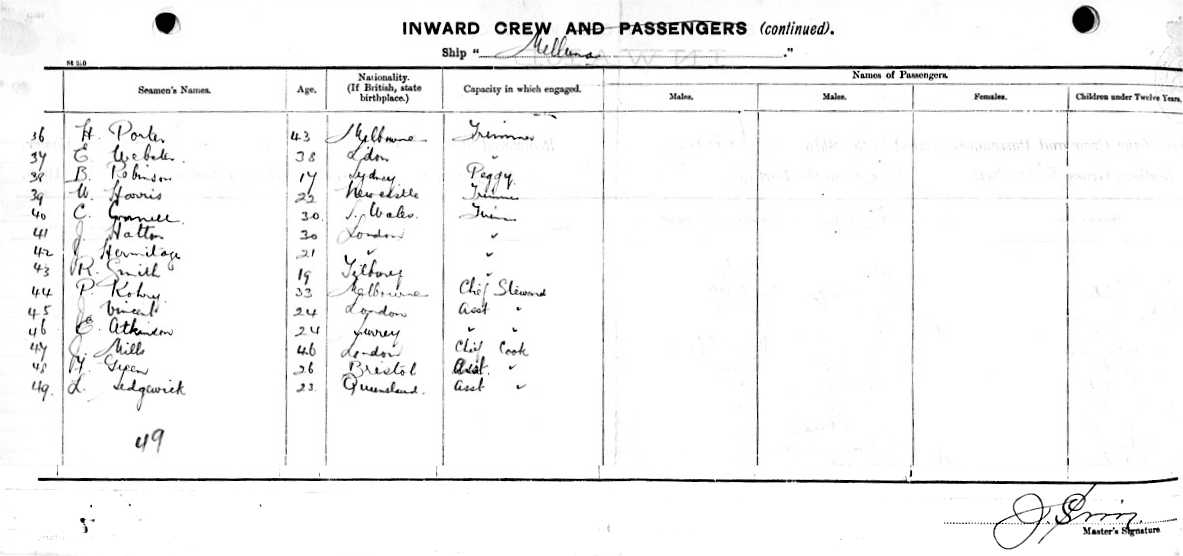 INWARD CREW AND PASSENGERS (continued).
Ship " "
Seamen's Names. Age. Nationality. (If British, state birthplace.) Capacity in which engaged. Names of Passengers.
Males. Males. Females. Children under Twelve Years.
36 H. Porter 43 Melbourne Trimmer
37 E. Webster 38 "
38 B. Robinson 17 Sydney Peggy
39 W. Harris 22 Newcastle Trimmer
40 C. 30 S. Wales Trim
41 J. Hatton 30 London "
42 J. Hermitage 21 " "
43 R. Smith 19 Tilbury "
44 P. 33 Melbourne Chief Steward
45 J. Vincent 24 London Asst "
46 E. Atkinson 24 Surrey " "
47 J. Mills 46 London Chief Cook
48 H. Green 26 Bristol Asst. "
49. L. Sedgewick 23 Queensland. Asst "
49
Master's Signature